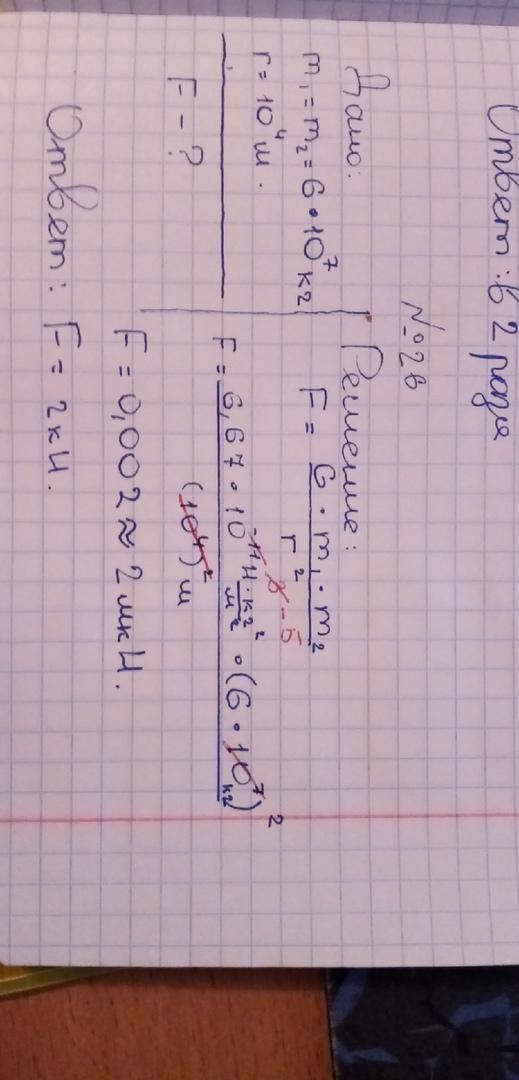 Ответ: в 2 раза
№2в
Дано:
m₁ = m₂ = 6 • 10⁷ кг
r = 10⁴ м.
F – ?
Решение:
F = G • m₁ • m₂ / r²
F = 6,67 • 10⁻¹¹ Н • кг² / м² • (6 • 10⁷ кг)² / (10⁴)² м
-5
F = 0,002 ≈ 2 мкН.
Ответ: F = 2кН.